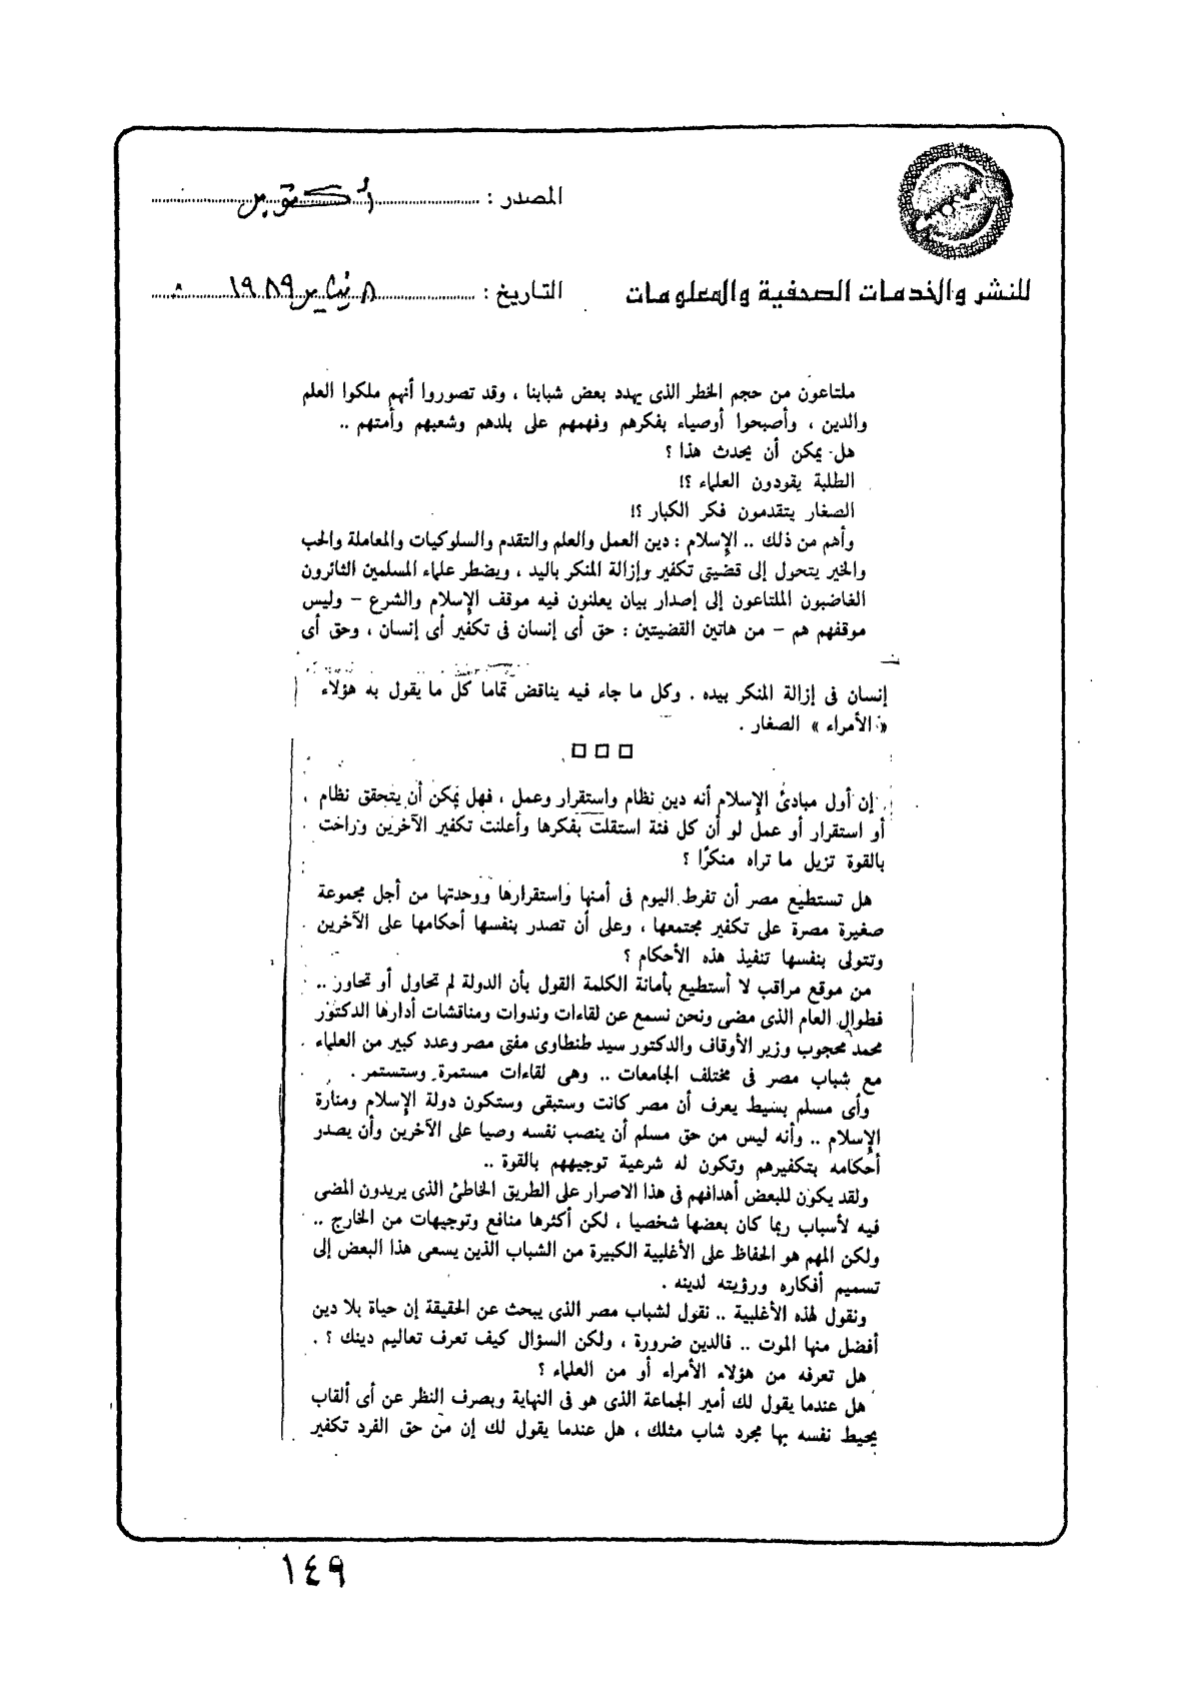 المصدر : أكتوبر
للنشر والخدمات الصحفية والمعلومات
التاريخ : ٨ يناير ١٩٨٩
ملتاعون من حجم الخطر الذى يهدد بعض شبابنا ، وقد تصوروا أنهم ملكوا العلم
والدين ، وأصبحوا أوصياء بفكرهم وفهمهم على بلدهم وشعبهم وأمتهم ..
هل يمكن أن يحدث هذا ؟
الطلبة يقودون العلماء ؟!
الصغار يتقدمون فكر الكبار ؟!
وأهم من ذلك .. الإسلام : دين العمل والعلم والتقدم والسلوكيات والمعاملة والحب
والخير يتحول إلى قضيتى تكفير وإزالة المنكر باليد ، ويضطر علماء المسلمين الثائرون
الغاضبون الملتاعون إلى إصدار بيان يعلنون فيه موقف الإسلام والشرع – وليس
موقفهم هم – من هاتين القضيتين : حق أى إنسان فى تكفير أى إنسان ، وحق أى
إنسان فى إزالة المنكر بيده . وكل ما جاء فيه يناقض تماما كل ما يقول به هؤلاء
« الأمراء » الصغار .
□ □ □
إن أول مبادئ الإسلام أنه دين نظام واستقرار وعمل ، فهل يمكن أن يتحقق نظام
أو استقرار أو عمل لو أن كل فئة استقلت بفكرها وأعلنت تكفير الآخرين وراحت
بالقوة تزيل ما تراه منكرًا ؟
هل تستطيع مصر أن تفرط اليوم فى أمنها واستقرارها ووحدتها من أجل مجموعة
صغيرة مصرة على تكفير مجتمعها ، وعلى أن تصدر بنفسها أحكامها على الآخرين
وتتولى بنفسها تنفيذ هذه الأحكام ؟
من موقع مراقب لا أستطيع بأمانة الكلمة القول بأن الدولة لم تحاول أو تحاور ..
فطوال العام الذى مضى ونحن نسمع عن لقاءات وندوات ومناقشات أدارها الدكتور
محمد محجوب وزير الأوقاف والدكتور سيد طنطاوى مفتى مصر وعدد كبير من العلماء
مع شباب مصر فى مختلف الجامعات .. وهى لقاءات مستمرة وستستمر .
وأى مسلم بسيط يعرف أن مصر كانت وستبقى وستكون دولة الإسلام ومنارة
الإسلام .. وأنه ليس من حق مسلم أن ينصب نفسه وصيا على الآخرين وأن يصدر
أحكامه بتكفيرهم وتكون له شرعية توجيههم بالقوة ..
ولقد يكون للبعض أهدافهم فى هذا الاصرار على الطريق الخاطئ الذى يريدون المضى
فيه لأسباب ربما كان بعضها شخصيا ، لكن أكثرها منافع وتوجيهات من الخارج ..
ولكن المهم هو الحفاظ على الأغلبية الكبيرة من الشباب الذين يسعى هذا البعض إلى
تسميم أفكاره ورؤيته لدينه .
ونقول لهذه الأغلبية .. نقول لشباب مصر الذى يبحث عن الحقيقة إن حياة بلا دين
أفضل منها الموت .. فالدين ضرورة ، ولكن السؤال كيف تعرف تعاليم دينك ؟ .
هل تعرفه من هؤلاء الأمراء أو من العلماء ؟
هل عندما يقول لك أمير الجماعة الذى هو فى النهاية وبصرف النظر عن أى ألقاب
يحيط نفسه بها مجرد شاب مثلك ، هل عندما يقول لك إن من حق الفرد تكفير
١٤٩